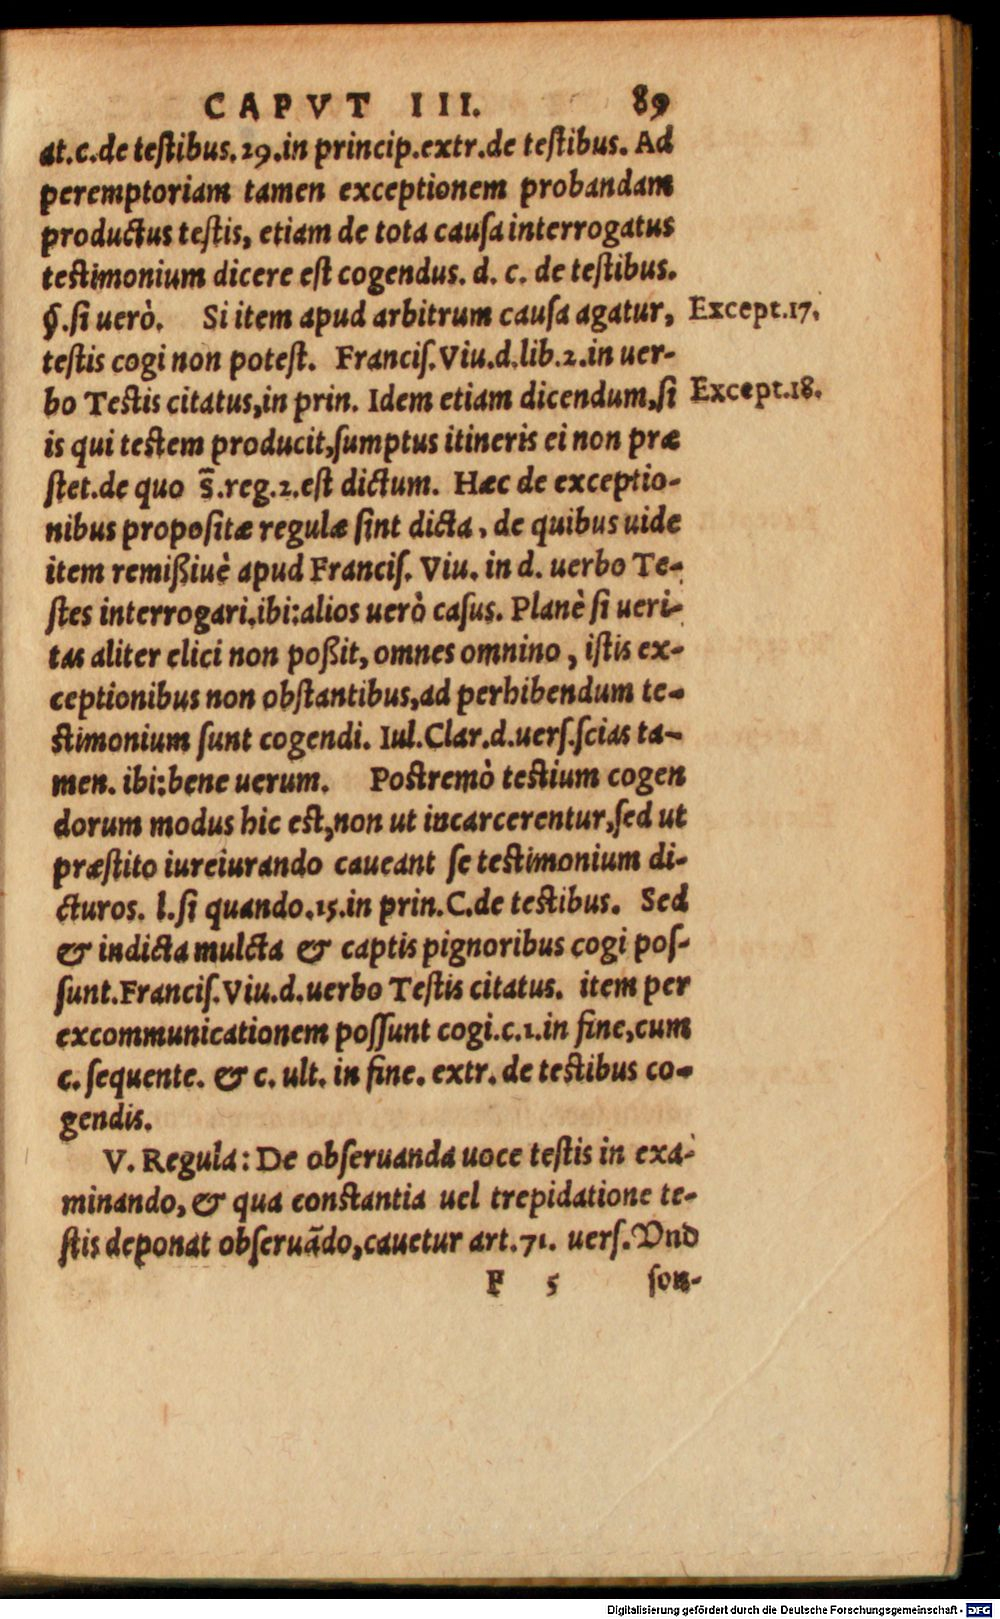 CAPVT III. 89
at.c.de teſtibus.29.in princip.extr.de teſtibus. Ad
peremptoriam tamen exceptionem probandam
productus teſtis, etiam de tota cauſa interrogatus
teſtimonium dicere eſt cogendus. d. c. de teſtibus.
§.ſi uerò. Si item apud arbitrum cauſa agatur, Except.17.
teſtis cogi non poteſt. Franciſ.Viu.d.lib.2.in uer-
bo Teſtis citatus,in prin. Idem etiam dicendum,ſi Except.18.
is qui teſtem producit,ſumptus itineris ei non præ
ſtet.de quo s̄.reg.2.eſt dictum. Hæc de exceptio-
nibus propoſitæ regulæ ſint dicta, de quibus uide
item remißiuè apud Franciſ. Viu. in d. uerbo Te-
ſtes interrogari.ibi:alios uerò caſus. Planè ſi ueri-
tas aliter elici non poßit, omnes omnino, iſtis ex-
ceptionibus non obſtantibus,ad perhibendum te-
ſtimonium ſunt cogendi. Iul.Clar.d.uerſ.ſcias ta-
men. ibi:bene uerum. Poſtremò teſtium cogen
dorum modus hic eſt,non ut incarcerentur,ſed ut
præſtito iureiurando caueant ſe teſtimonium di-
cturos. l.ſi quando.15.in prin.C.de teſtibus. Sed
& indicta mulcta & captis pignoribus cogi poſ-
ſunt.Franciſ.Viu.d.uerbo Teſtis citatus. item per
excommunicationem poſſunt cogi.c.1.in fine,cum
c. ſequente. & c. ult. in fine. extr. de teſtibus co-
gendis.
V. Regula: De obſeruanda uoce teſtis in exa-
minando, & qua conſtantia uel trepidatione te-
ſtis deponat obſeruãdo,cauetur art.71. uerſ.Vnd
F 5 ſon-
Digitalisierung gefördert durch die Deutsche Forschungsgemeinschaft - DFG